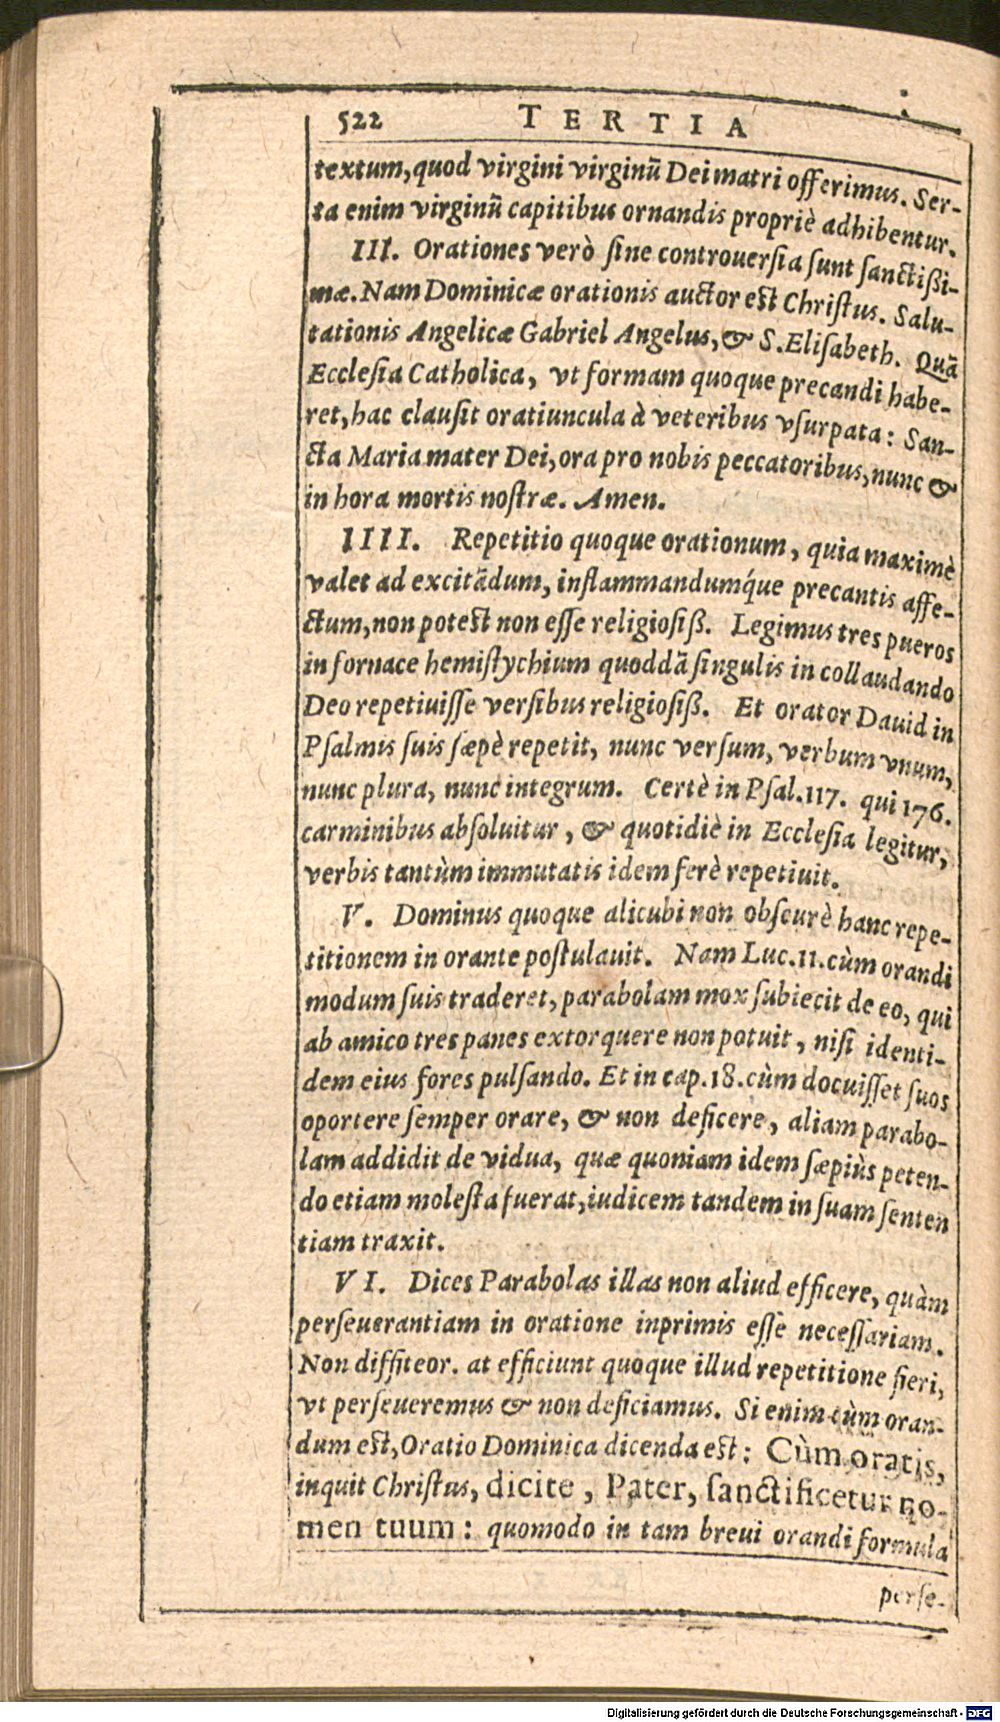 522 TERTIA
textum, quod virgini virginũ Dei matri offerimus. Ser-
ta enim virginũ capitibus ornandis propriè adhibentur.
III. Orationes verò ſine controuerſia ſunt ſanctißi-
mæ. Nam Dominicæ orationis auctor est Chriſtus. Salu-
tationis Angelicæ Gabriel Angelus, & S. Eliſabeth. Quã
Eccleſia Catholica, vt formam quoque precandi habe-
ret, hac clauſit oratiuncula à veteribus vſurpata: San-
cta Maria mater Dei, ora pro nobis peccatoribus, nunc &
in hora mortis noſtræ. Amen.
IIII. Repetitio quoque orationum, quia maximè
valet ad excitãdum, inflammandumq́ue precantis affe-
ctum, non potest non eſſe religioſiß. Legimus tres pueros
in fornace hemiſtychium quoddã ſingulis in collaudando
Deo repetiuiſſe verſibus religioſiß. Et orator Dauid in
Pſalmis ſuis ſæpè repetit, nunc verſum, verbum vnum,
nunc plura, nunc integrum. Certè in Pſal. 117. qui 176.
carminibus abſoluitur, & quotidiè in Eccleſia legitur,
verbis tantùm immutatis idem ferè repetiuit.
V. Dominus quoque alicubi non obſcurè hanc repe-
titionem in orante poſtulauit. Nam Luc. 11. cùm orandi
modum ſuis traderet, parabolam mox ſubiecit de eo, qui
ab amico tres panes extorquere non potuit, niſi identi-
dem eius fores pulſando. Et in cap. 18. cùm docuiſſet ſuos
oportere ſemper orare, & non deficere, aliam parabo-
lam addidit de vidua, quæ quoniam idem ſæpiùs peten-
do etiam moleſta fuerat, iudicem tandem in ſuam ſenten
tiam traxit.
VI. Dices Parabolas illas non aliud efficere, quàm
perſeuerantiam in oratione inprimis eſſe neceſſariam.
Non diffiteor. at efficiunt quoque illud repetitione fieri,
vt perſeueremus & non deficiamus. Si enim cùm oran-
dum est, Oratio Dominica dicenda est: Cùm oratis,
inquit Chriſtus, dicite, Pater, ſanctificetur no-
men tuum: quomodo in tam breui orandi formula
perſe-
Digitalisierung gefördert durch die Deutsche Forschungsgemeinschaft - DFG